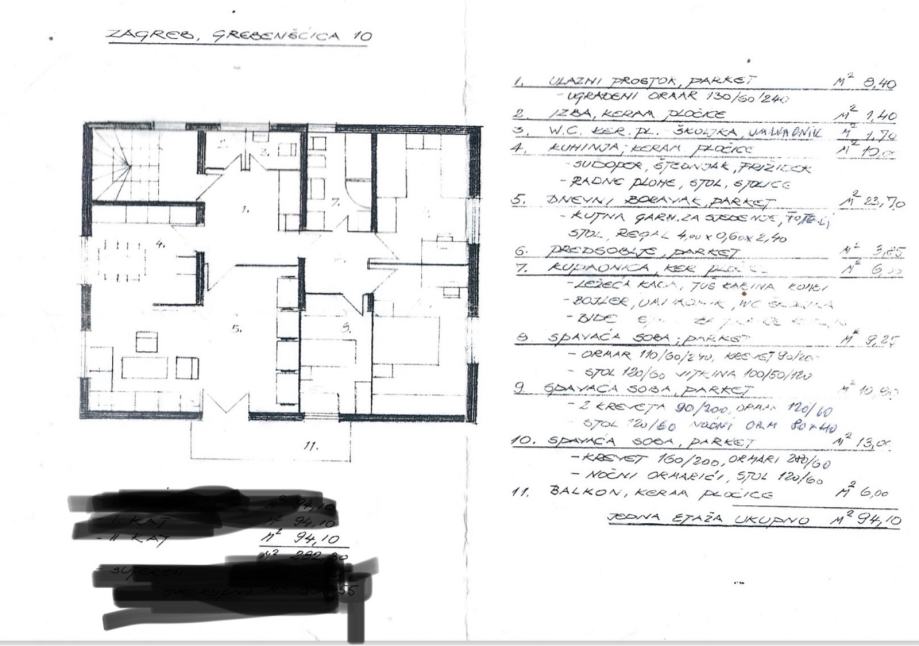 ZAGREB, GREBENŠĆICA 10
1.
4.
7.
5.
9.
11.
KAT M² 94,10
- II KAT M² 94,10
1. ULAZNI PROSTOR, PARKET M² 8,40
- UGRAĐENI ORMAR 130/60/240
2. IZBA, KERAM PLOČICE M² 1,40
3. W.C. KER. PL. ŠKOLJKA, UMIVAONIK M² 1,70
4. KUHINJA; KERAM PLOČICE M² 10,0
- SUDOPER, ŠTEDNJAK, FRIŽIDER
- RADNE PLOHE, STOL, STOLICE
5. DNEVNI BORAVAK, PARKET M² 23,70
- KUTNA GARN. ZA SJEDENJE,
STOL, REGAL 4,00 x 0,60 x 2,40
6. PREDSOBLJE, PARKET M² 3,85
7. KUPAONICA, KER PLOČ M² 6,
- LEŽEĆA KADA, TUŠ KABINA KOMBI
- BOJLER, UMIVAONIK, WC ŠKOLJKA
- BIDE
8. SPAVAĆA SOBA; PARKET M² 9,25
- ORMAR 110/60/240, KREVET 90/200
- STOL 120/60 VITRINA 100/50/120
9. SPAVAĆA SOBA, PARKET M² 10,
- 2 KREVETA 90/200, ORMAR 120/60
- STOL 120/60 NOĆNI ORM 80x40
10. SPAVAĆA SOBA, PARKET M² 13,0
- KREVET 160/200, ORMARI 280/60
- NOĆNI ORMARIĆI, STOL 120/60
11. BALKON, KERAM PLOČICE M² 6,00
JEDNA ETAŽA UKUPNO M² 94,10